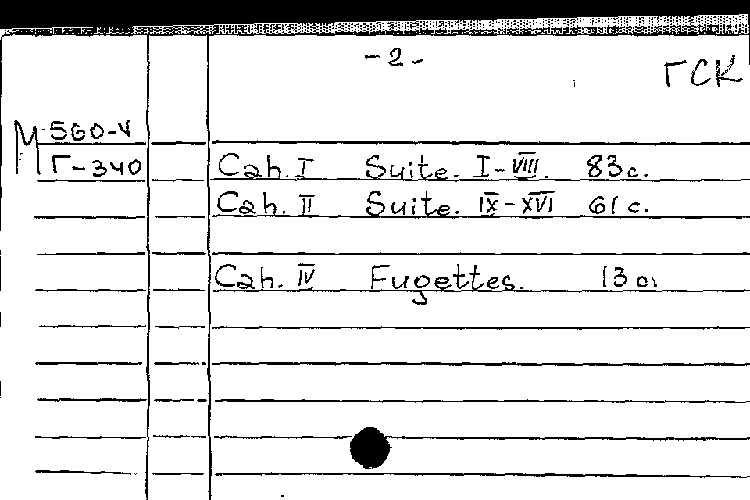 -2-
ГСК
М 560-V
Г-340
Cah. I Suite. I-VIII. 83с.
Cah. II Suite. IX-XVI 61с.
Cah. IV Fugettes. 13с.